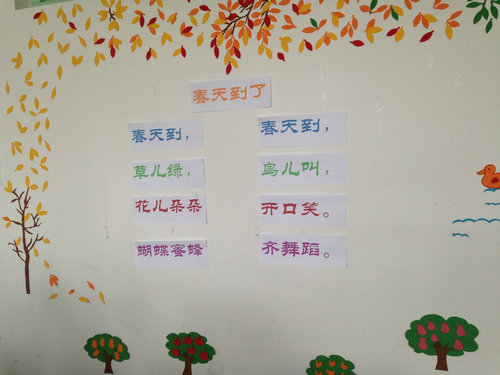 春天到了
春天到， 春天到，
草儿绿， 鸟儿叫，
花儿朵朵 开口笑。
蝴蝶蜜蜂 齐舞蹈。